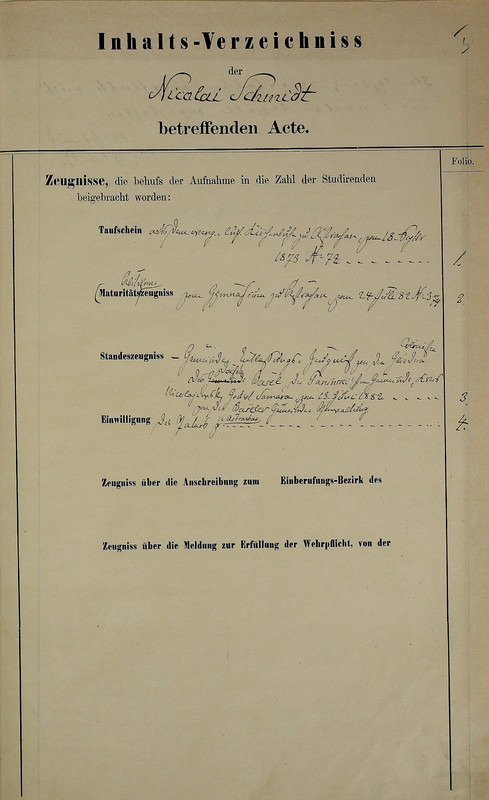 Inhalts-Verzeichniss
der
Nicolai Schmidt
betreffenden Acte.
Folio.
Zeugnisse, die behufs der Aufnahme in die Zahl der Studirenden
beigebracht worden:
Taufschein aus dem evang. luth. Kirchenbuch zu Astrachan, vom 18.
1873 № 72 1.
(Maturitätszeugniss vom Gymnasium zu Astrachan, vom 24 Juli 82 № 379 2.
Standeszeugniss – Gemeinde Entlassungs-Zeugniss von der
Colonisten
des Dorfes Basel, der
Nicolajewsk, Gouv. Samara, vom 1882 3.
von der Baseler Gemeinde Verwaltung
Einwilligung des Vaters 4.
in Astrachan
Zeugniss über die Anschreibung zum Einberufungs-Bezirk des
Zeugniss über die Meldung zur Erfüllung der Wehrpflicht, von der